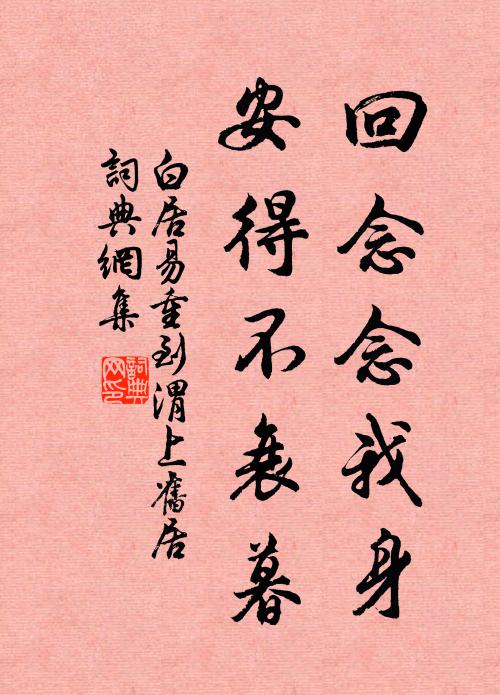 回念念我身
安得不衰暮
白居易重到渭上舊居
詞典網集
詞典网印